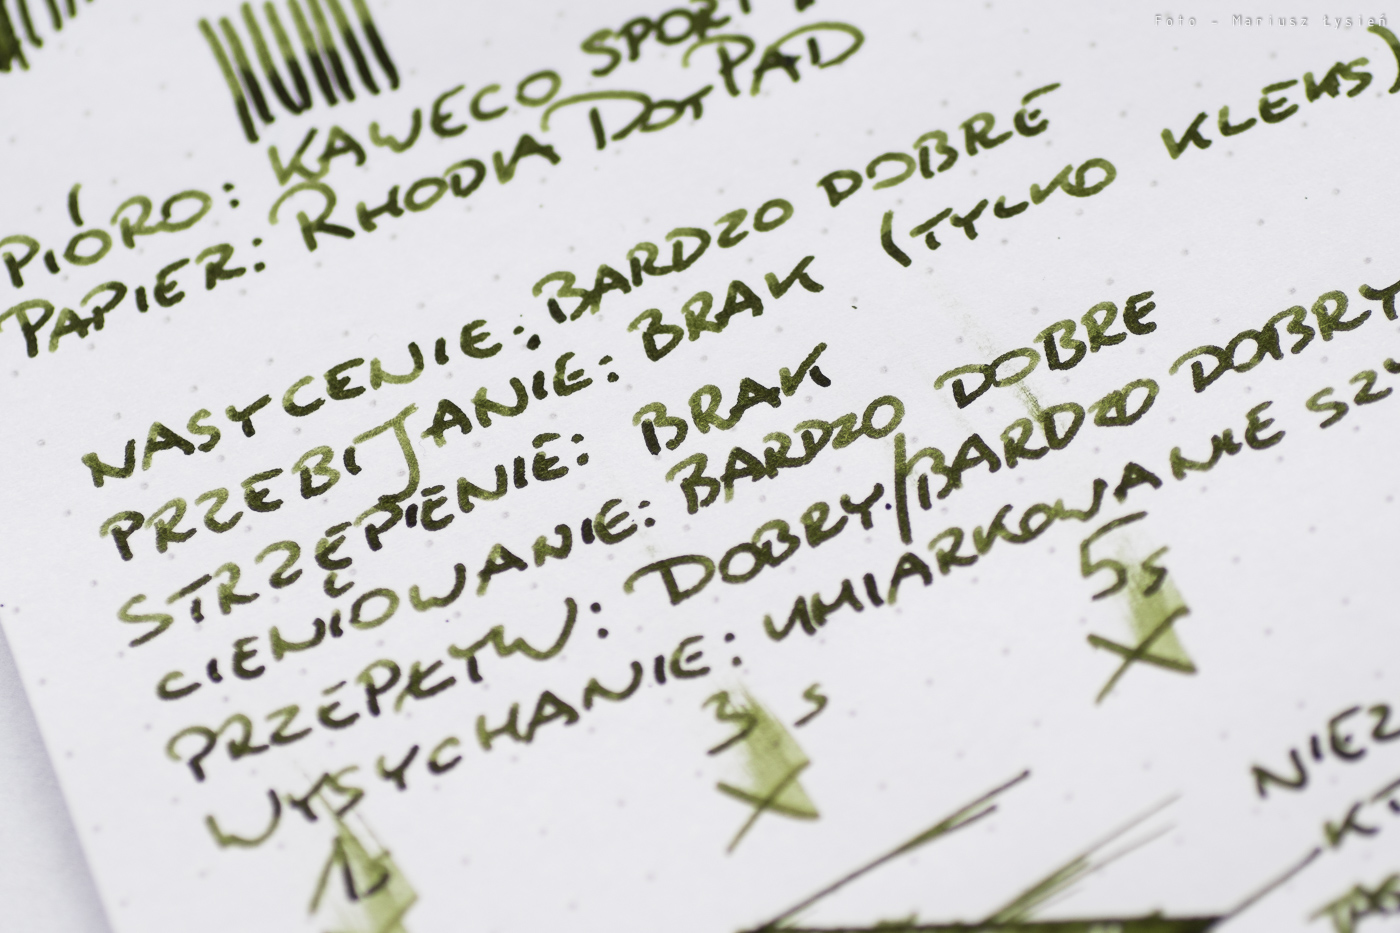 Foto - Mariusz Łysień
PIÓRO: KAWECO SPORT
PAPIER: RHODIA DOT PAD
NASYCENIE: BARDZO DOBRE
PRZEBIJANIE: BRAK (TYLKO KLEKS)
STRZĘPIENIE: BRAK
CIENIOWANIE: BARDZO DOBRE
PRZEPŁYW: DOBRY/BARDZO DOBRY
WYSYCHANIE: UMIARKOWANIE
5s
3 s